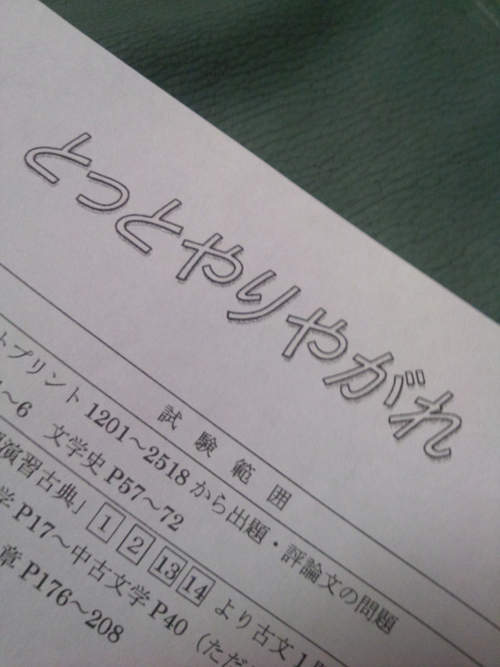 とっとやりやがれ
試験範囲
トプリント1201～2518から出題・評論文の問題
1～6 文学史P57～72
演習古典」1 2 13 14 より古文1
学P17～中古文学P40（ただ
章P176～208